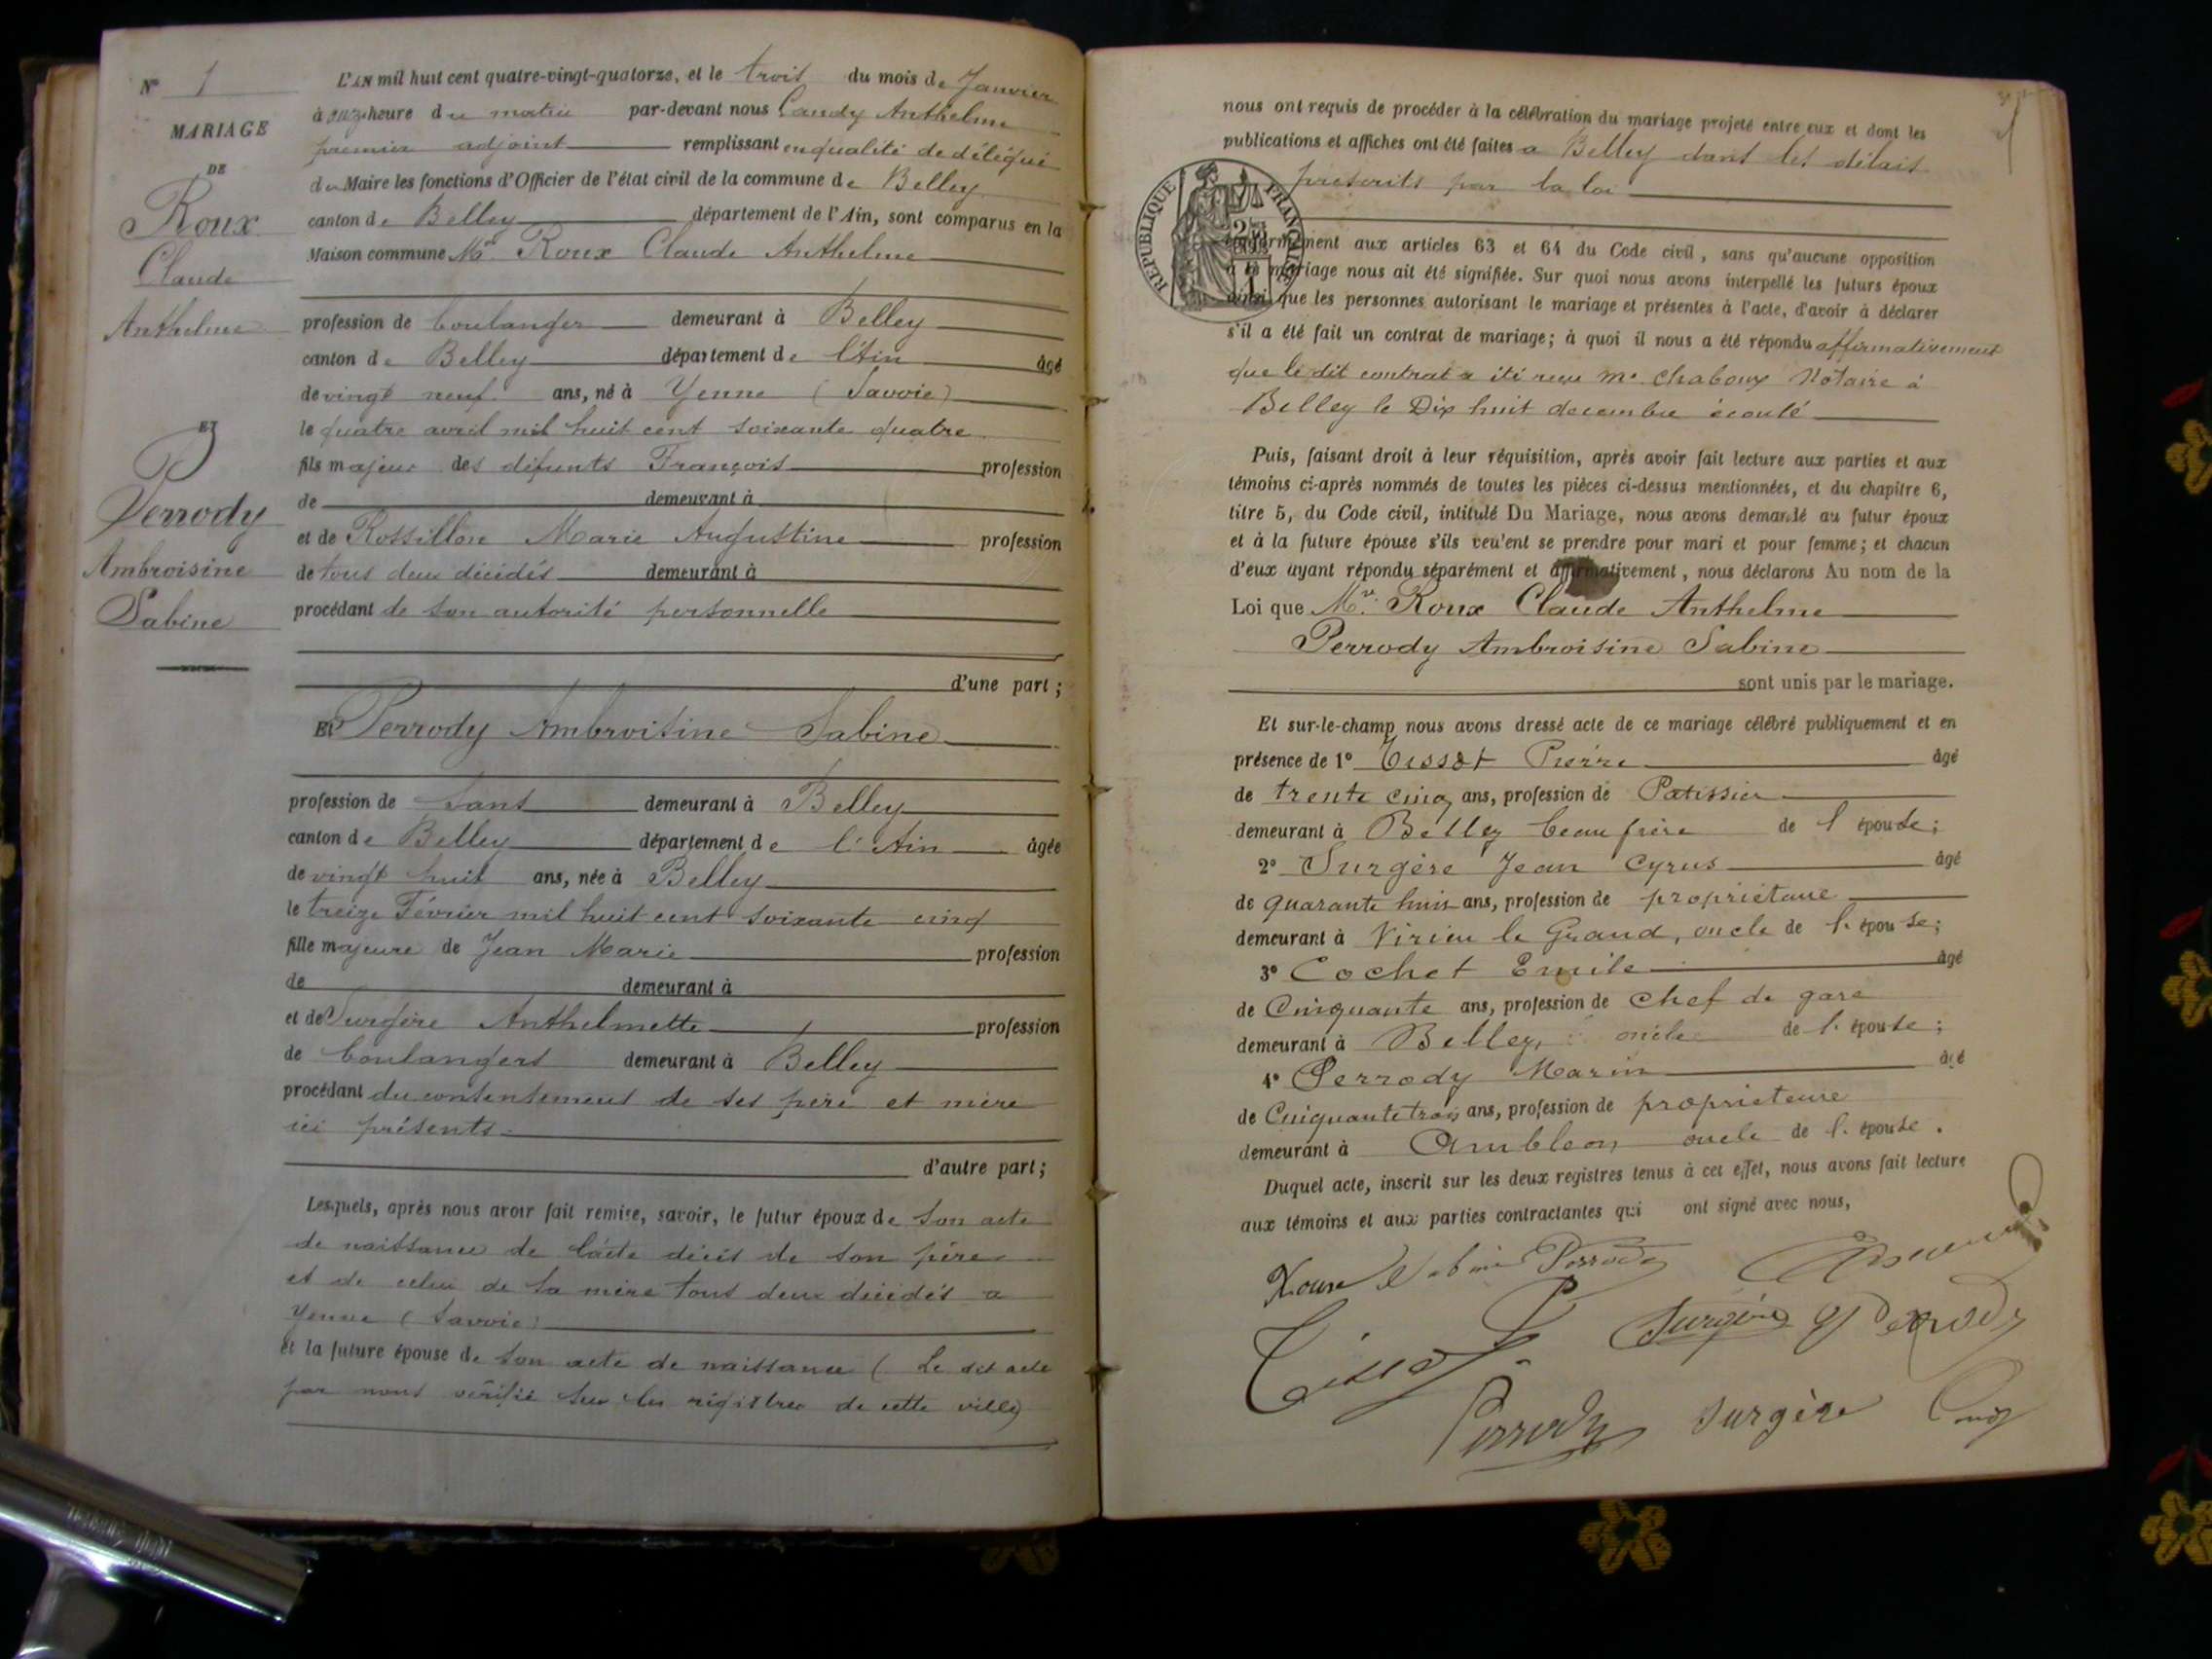 N° 1
MARIAGE
DE
Roux
Claude
Anthelme
ET
Perrody
Ambroisine
Sabine
L'AN mil huit cent quatre-vingt-quatorze, et le trois du mois de Janvier
à onze heure du matin par-devant nous Candy Anthelme
premier adjoint remplissant en qualité de délégué
du Maire les fonctions d'Officier de l'état civil de la commune de Belley
canton de Belley département de l'Ain, sont comparus en la
Maison commune Mr. Roux Claude Anthelme
profession de boulanger demeurant à Belley
canton de Belley département de l'Ain âgé
de vingt neuf ans, né à Yenne (Savoie)
le quatre avril mil huit cent soixante quatre
fils majeur des défunts François profession
de demeurant à
et de Rossillon Marie Augustine profession
de tous deux décédés demeurant à
procédant de son autorité personnelle
d'une part;
Et Perrody Ambroisine Sabine
profession de sans demeurant à Belley
canton de Belley département de l'Ain âgée
de vingt huit ans, née à Belley
le treize Février mil huit cent soixante cinq
fille majeure de Jean Marie profession
de demeurant à
et de Surgère Anthelmette profession
de boulangers demeurant à Belley
procédant du consentement de ses père et mère
ici présents
d'autre part;
Lesquels, après nous avoir fait remise, savoir, le futur époux de son acte
de naissance de l'acte décès de son père
et de celui de sa mère tous deux décédés a
Yenne (Savoie)
et la future épouse de son acte de naissance (Le dit acte
par nous vérifié sur les registres de cette ville)
nous ont requis de procéder à la célébration du mariage projeté entre eux et dont les
publications et affiches ont été faites a Belley dans les délais
prescrits par la loi
RÉPUBLIQUE FRANÇAISE
conformément aux articles 63 et 64 du Code civil, sans qu'aucune opposition
à ce mariage nous ait été signifiée. Sur quoi nous avons interpellé les futurs époux
ainsi que les personnes autorisant le mariage et présentes à l'acte, d'avoir à déclarer
s'il a été fait un contrat de mariage; à quoi il nous a été répondu affirmativement
que le dit contrat a été reçu me Chaboux Notaire à
Belley le Dix huit decembre écoulé
Puis, faisant droit à leur réquisition, après avoir fait lecture aux parties et aux
témoins ci-après nommés de toutes les pièces ci-dessus mentionnées, et du chapitre 6,
titre 5, du Code civil, intitulé Du Mariage, nous avons demandé au futur époux
et à la future épouse s'ils veulent se prendre pour mari et pour femme; et chacun
d'eux ayant répondu séparément et affirmativement, nous déclarons Au nom de la
Loi que Mr. Roux Claude Anthelme
Perrody Ambroisine Sabine
sont unis par le mariage.
Et sur-le-champ nous avons dressé acte de ce mariage célébré publiquement et en
présence de 1° Tissot Pierre âgé
de trente cinq ans, profession de Patissier
demeurant à Belley beau frère de l'épouse;
2° Surgère Jean Cyrus âgé
de quarante huit ans, profession de propriétaire
demeurant à Virieu le Grand, oncle de l'épouse;
3° Cochet Emile âgé
de Cinquante ans, profession de chef de gare
demeurant à Belley, oncle de l'épouse;
4° Perrody Marin âgé
de Cinquante trois ans, profession de propriétaire
demeurant à Ambléon oncle de l'épouse.
Duquel acte, inscrit sur les deux registres tenus à cet effet, nous avons fait lecture
aux témoins et aux parties contractantes qui ont signé avec nous,
Roux Sabine Perrody
Tissot P. Surgère Perrody
Perrody Surgère Candy